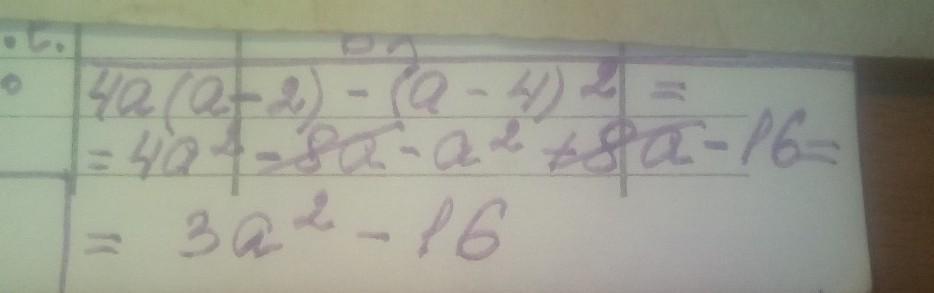 .t.
4a(a-2) - (a - 4)2 =
= 4a² - 8a - a² + 8a - 16 =
= 3a² - 16